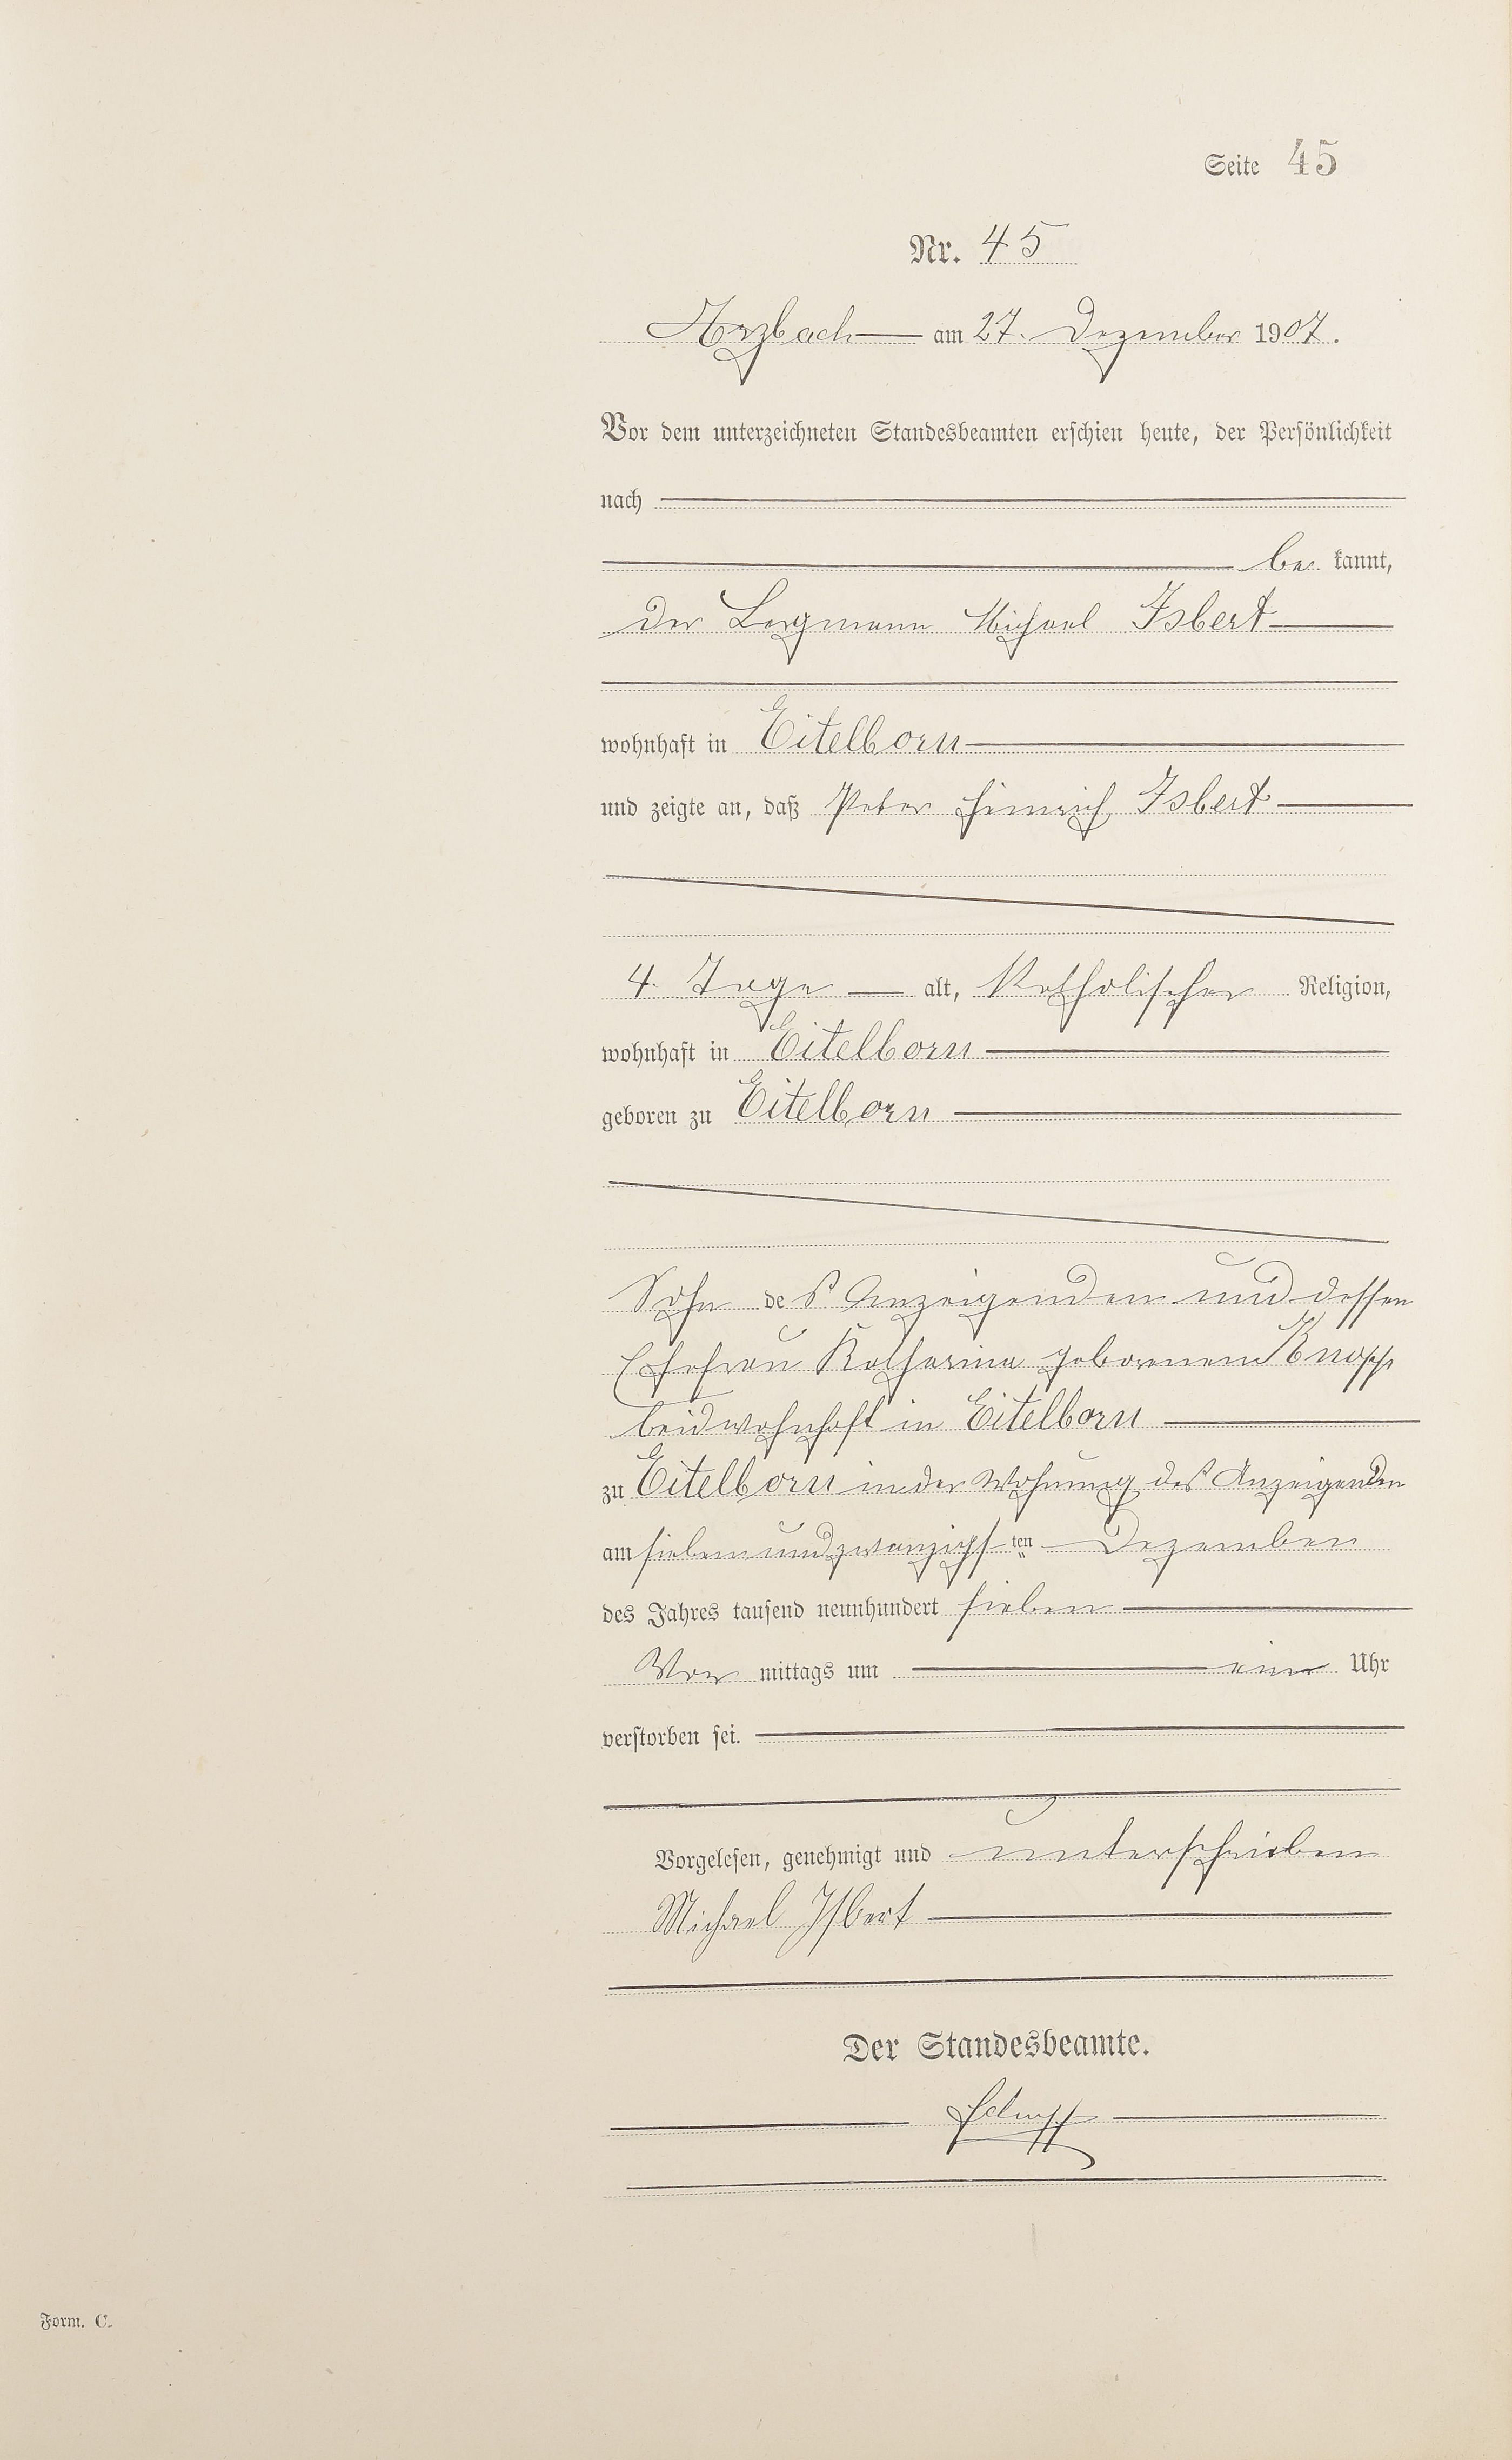 Seite 45
Nr. 45
Arzbach am 27. Dezember 1907.
Vor dem unterzeichneten Standesbeamten erschien heute, der Persönlichkeit
nach
be kannt,
der Bergmann Michael Isbert
wohnhaft in Eitelborn
und zeigte an, daß Peter Heinrich Isbert
4. Tage alt, Katholischer Religion,
wohnhaft in Eitelborn
geboren zu Eitelborn
Sohn des Anzeigenden und dessen
Ehefrau Katharina gebornenen Knopp
beid wohnhaft in Eitelborn
zu Eitelborn in der Wohnung des Anzeigenden
am sieben und zwanzigsten Dezember
des Jahres tausend neunhundert sieben
Vor mittags um ein Uhr
verstorben sei.
Vorgelesen, genehmigt und unterschrieben
Michael Isbert
Der Standesbeamte.
Form. C.